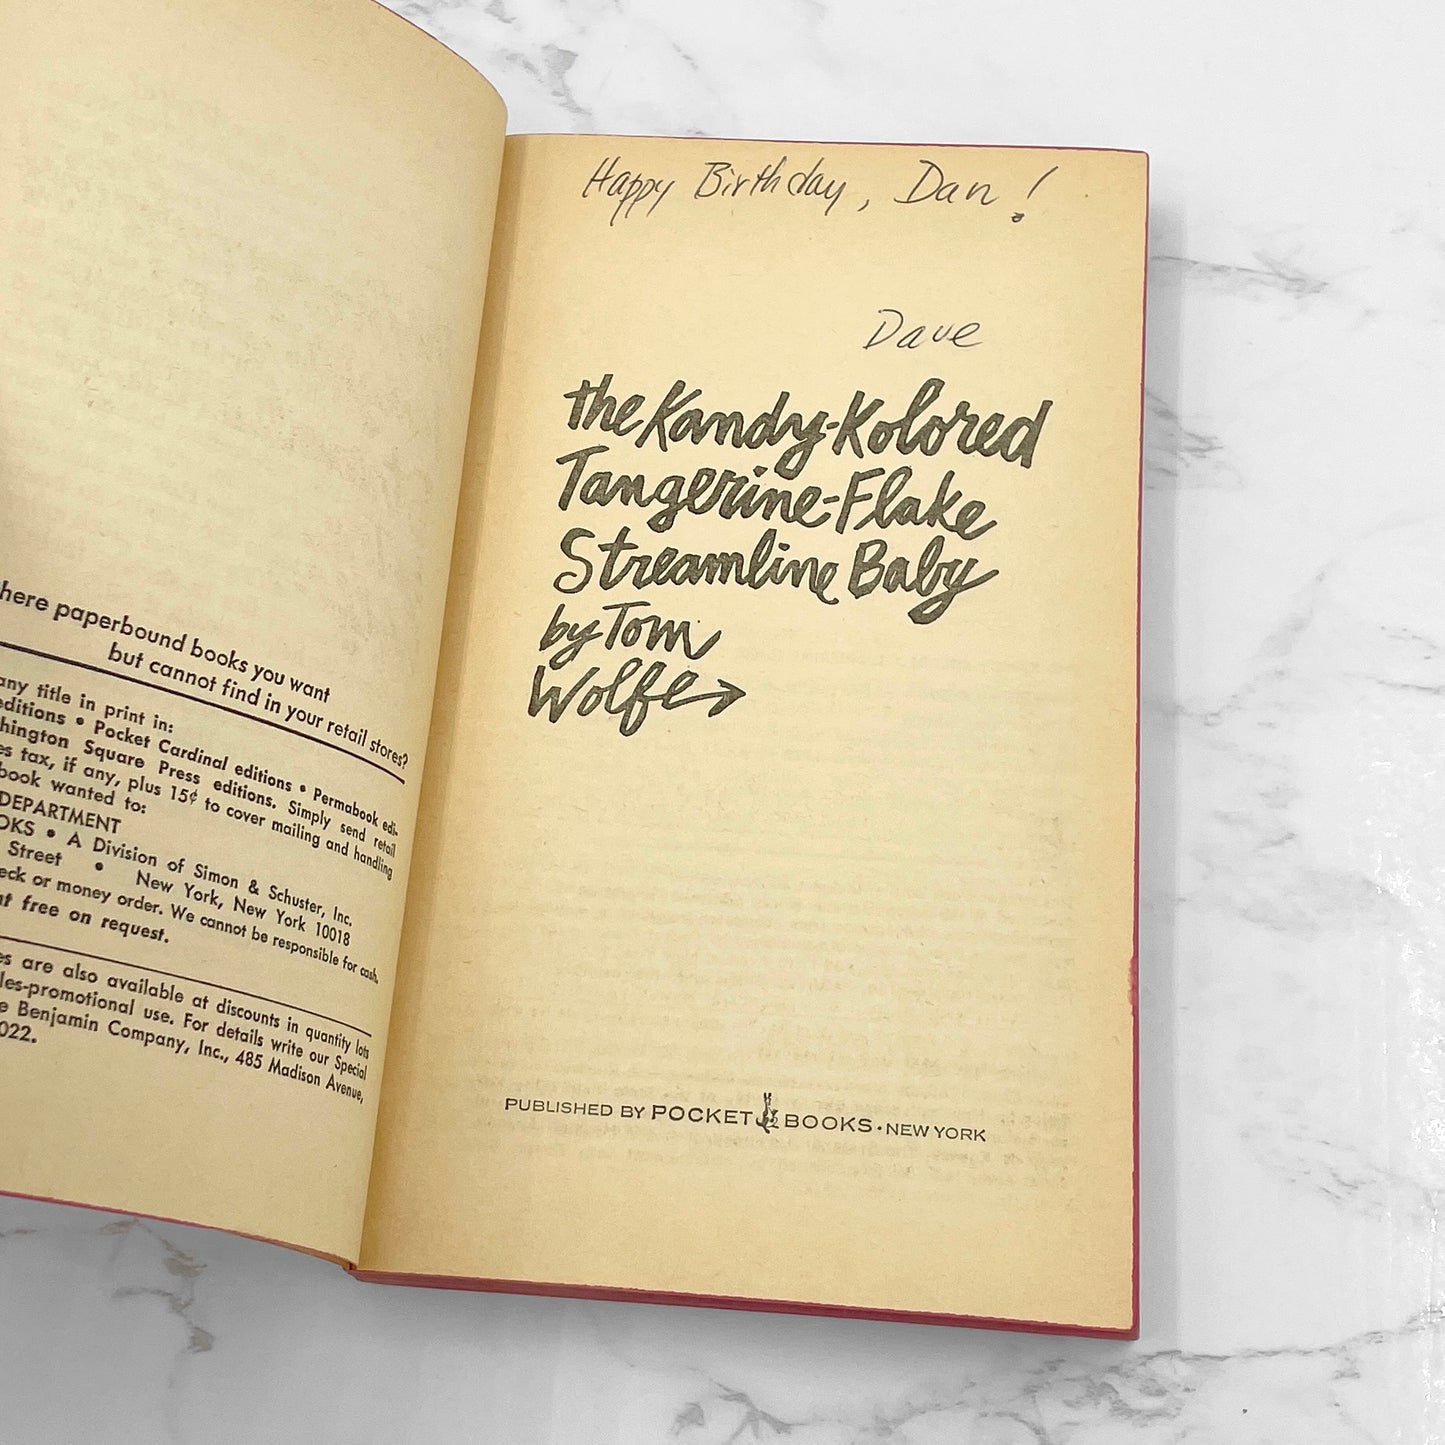 here paperbound books you want
but cannot find in your retail stores?
any title in print in:
editions • Pocket Cardinal editions • Permabook edi-
hington Square Press editions. Simply send retail
es tax, if any, plus 15¢ to cover mailing and handling
book wanted to:
DEPARTMENT
OKS • A Division of Simon & Schuster, Inc.
Street • New York, New York 10018
eck or money order. We cannot be responsible for cash.
t free on request.
es are also available at discounts in quantity lots
les-promotional use. For details write our Special
e Benjamin Company, Inc., 485 Madison Avenue,
022.
Happy Birthday, Dan!
Dave
the Kandy-Kolored
Tangerine-Flake
Streamline Baby
by Tom
Wolfe
PUBLISHED BY POCKET BOOKS • NEW YORK